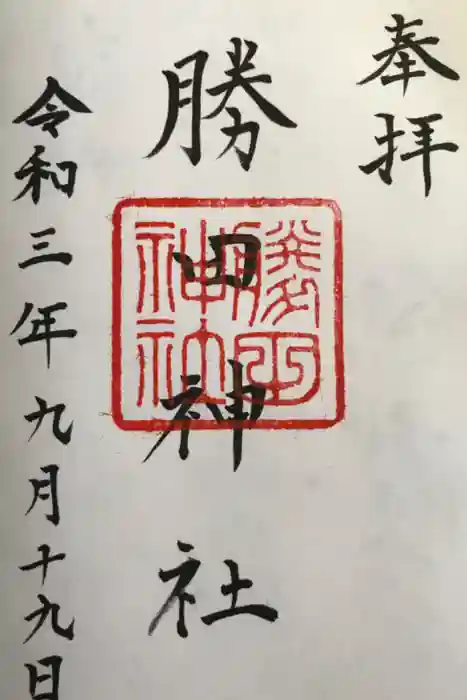 奉拝
勝田神社
勝田
神社
令和三年九月十九日